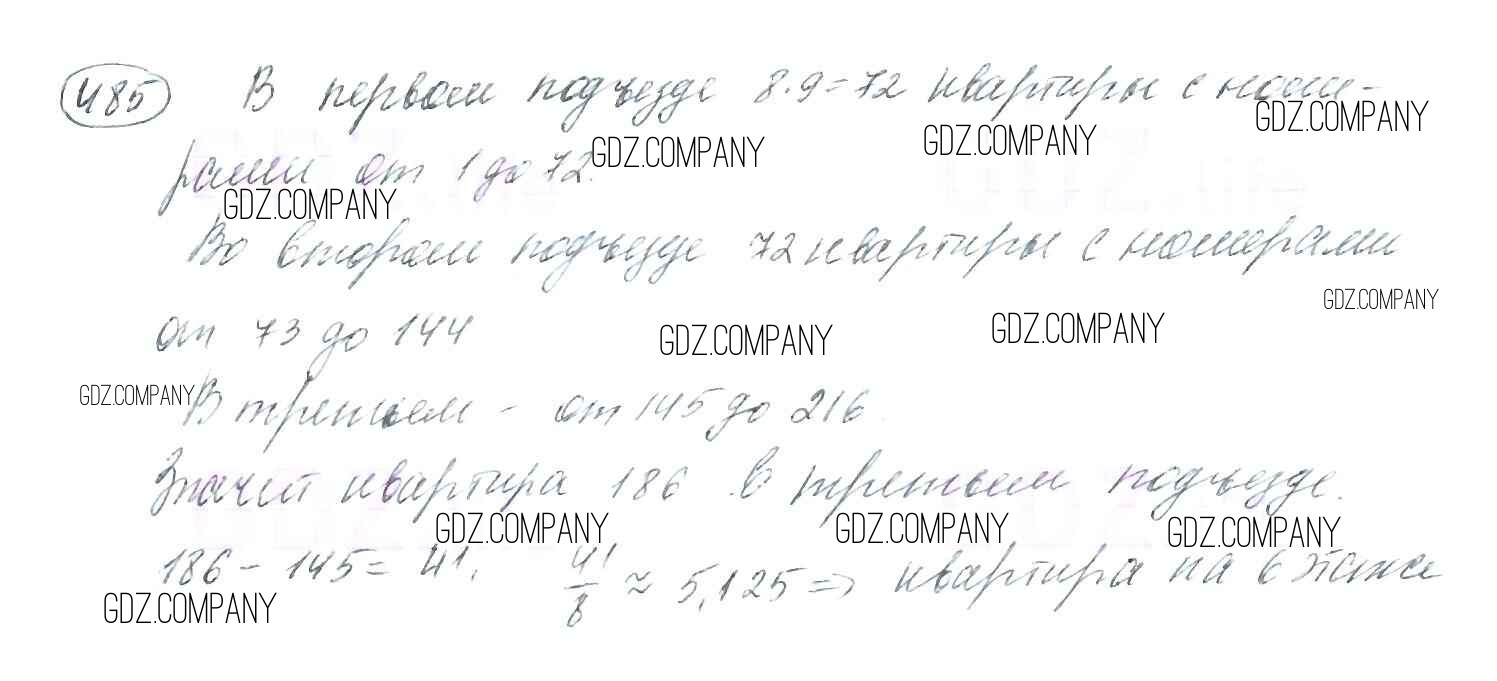 485 В первом подъезде 8·9=72 квартиры с номе-
GDZ.COMPANY GDZ.COMPANY GDZ.COMPANY
рами от 1 до 72.
GDZ.COMPANY
Во втором подъезде 72 квартиры с номерами
GDZ.COMPANY
от 73 до 144
GDZ.COMPANY GDZ.COMPANY
GDZ.COMPANY
В третьем - от 145 до 216.
Значит квартира 186 в третьем подъезде.
GDZ.COMPANY GDZ.COMPANY GDZ.COMPANY
186 - 145 = 41. 41/8 ≈ 5,125 => квартира на 6 этаже
GDZ.COMPANY